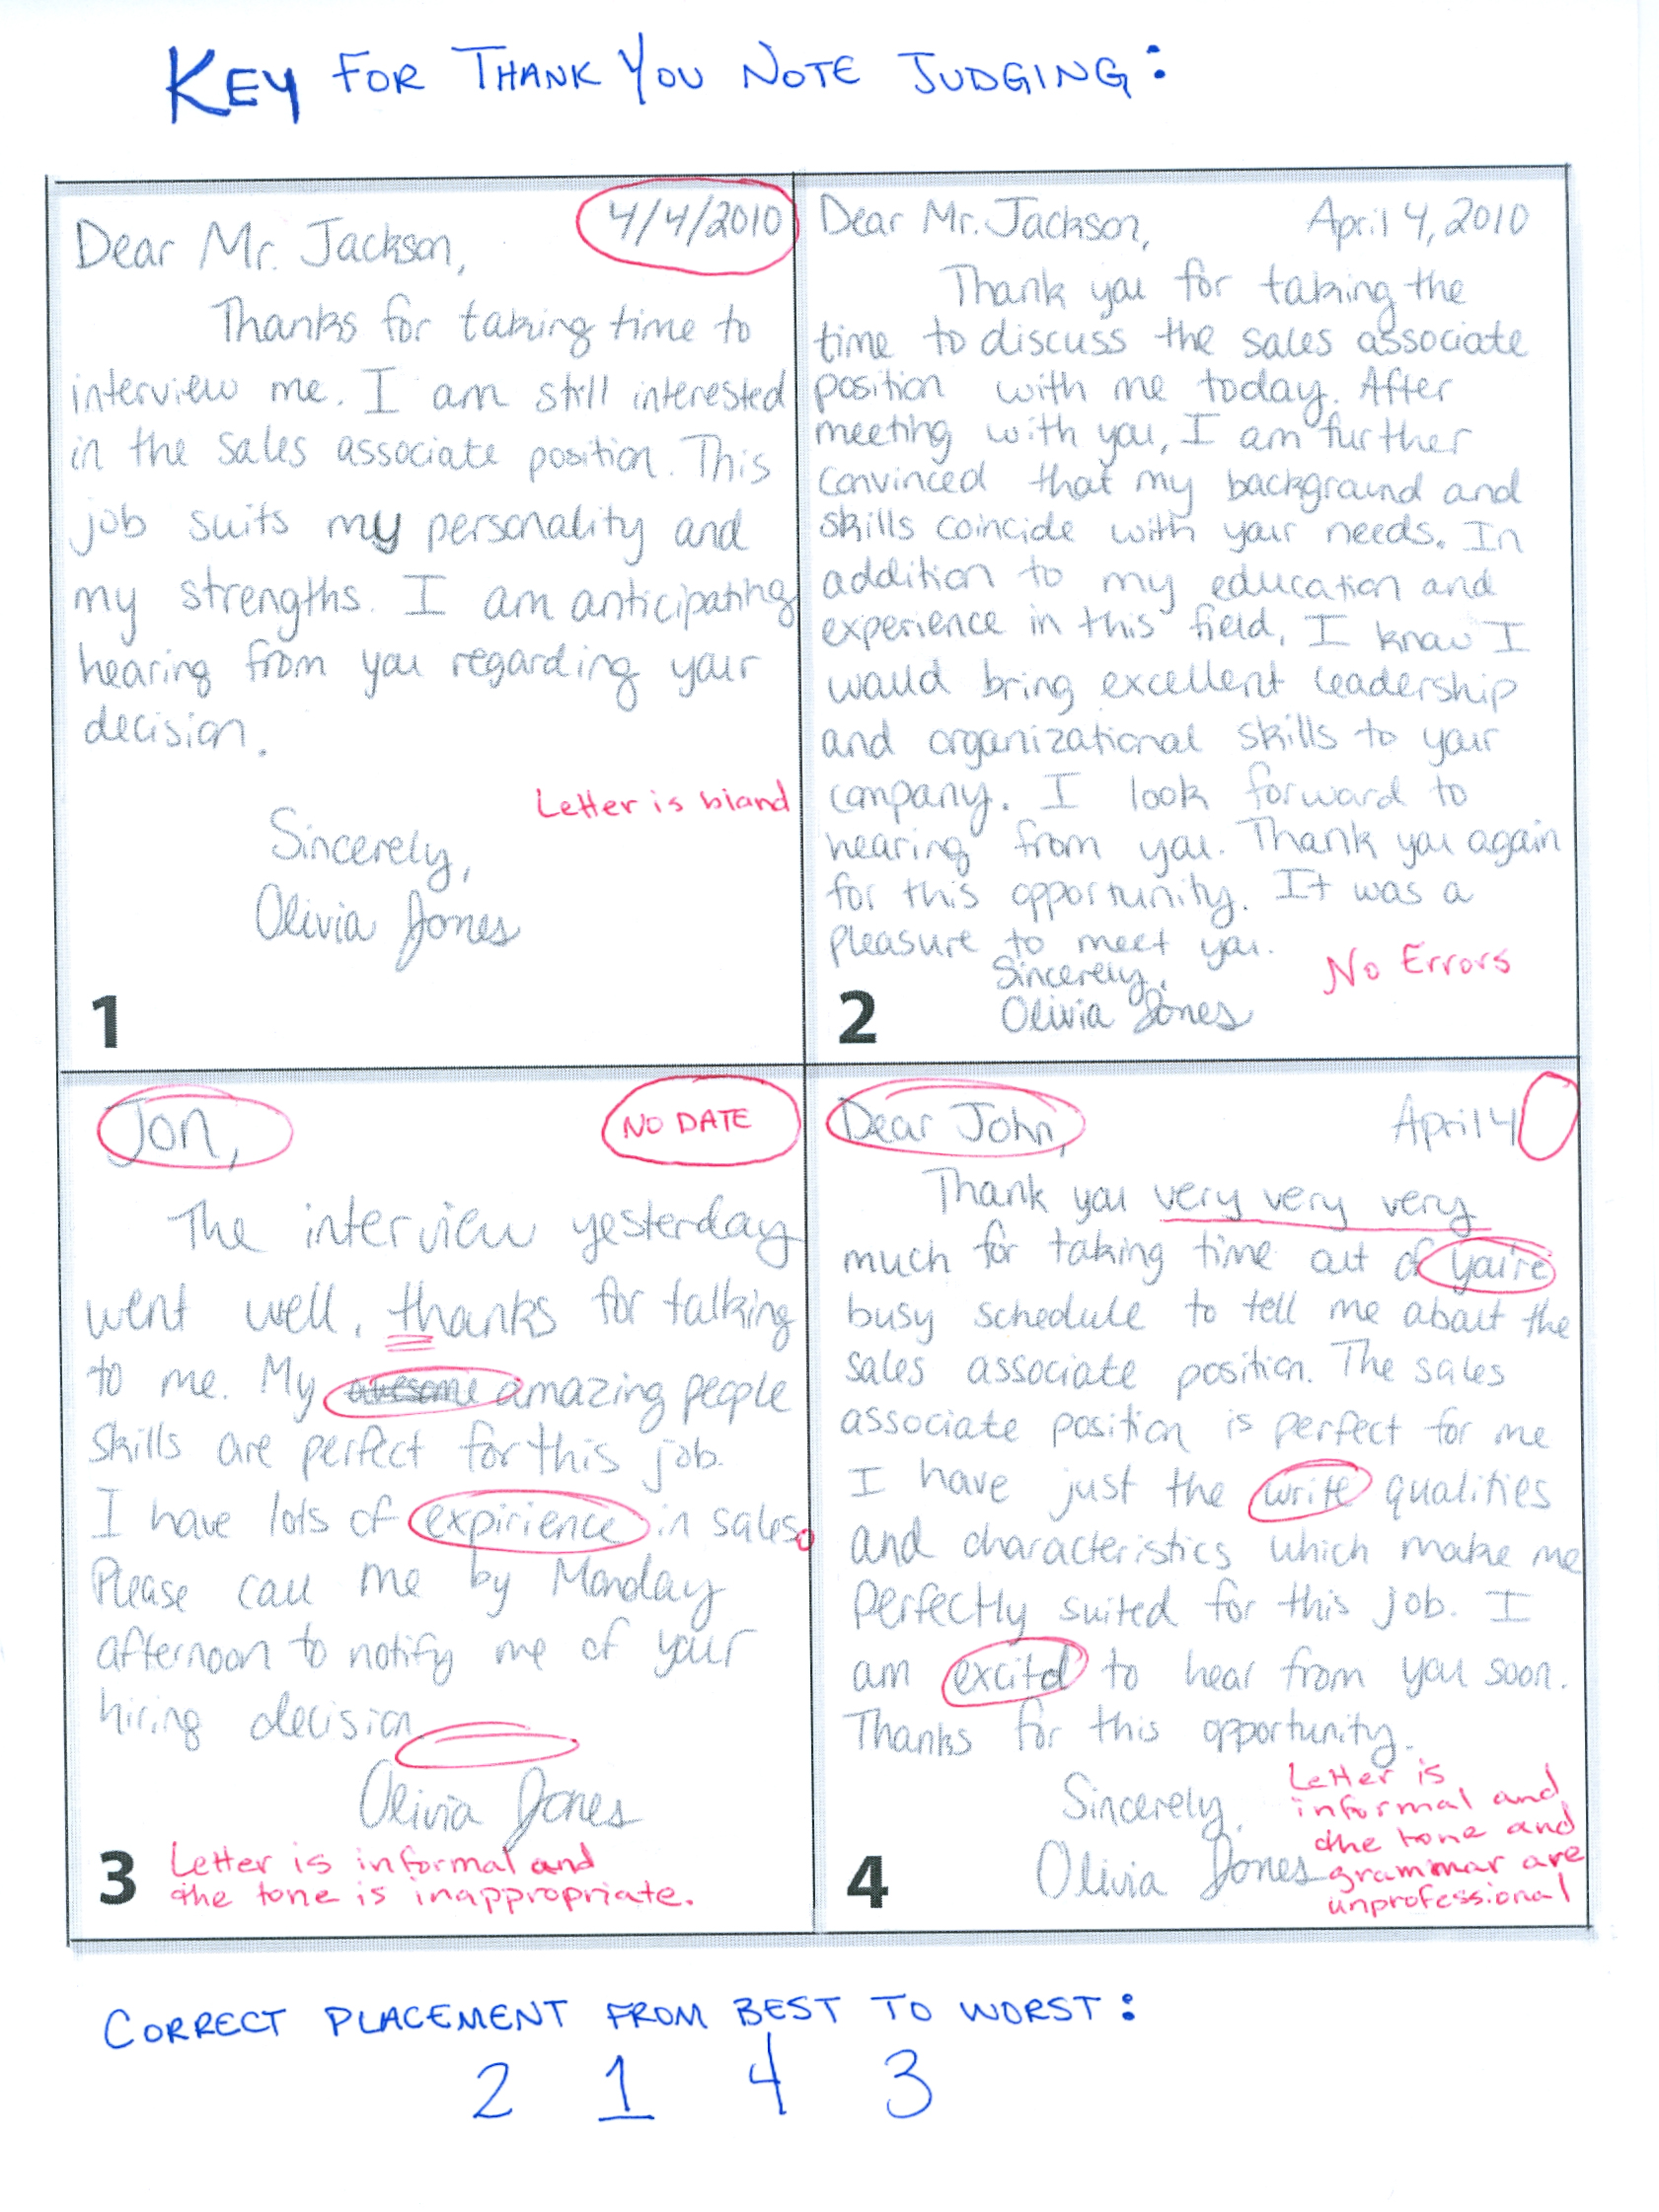 KEY FOR THANK YOU NOTE JUDGING:
4/4/2010
Dear Mr. Jackson,
Thanks for taking time to
interview me. I am still interested
in the sales associate position. This
job suits my personality and
my strengths. I am anticipating
hearing from you regarding your
decision.
Letter is bland
Sincerely,
Olivia Jones
1
Dear Mr. Jackson,
April 4, 2010
Thank you for taking the
time to discuss the sales associate
position with me today. After
meeting with you, I am further
convinced that my background and
skills coincide with your needs. In
addition to my education and
experience in this field, I know I
would bring excellent leadership
and organizational skills to your
company. I look forward to
hearing from you. Thank you again
for this opportunity. It was a
pleasure to meet you.
Sincerely,
Olivia Jones
No Errors
2
Jon,
NO DATE
The interview yesterday
went well, thanks for talking
to me. My awesome amazing people
skills are perfect for this job.
I have lots of expirience in sales
Please call me by Monday
afternoon to notify me of your
hiring decision
Olivia Jones
3
Letter is informal and
the tone is inappropriate.
Dear John,
April 4
Thank you very very very
much for taking time out of you're
busy schedule to tell me about the
sales associate position. The sales
associate position is perfect for me
I have just the write qualities
and characteristics which make me
perfectly suited for this job. I
am excitd to hear from you soon.
Thanks for this opportunity.
Sincerely,
Olivia Jones
Letter is
informal and
the tone and
grammar are
unprofessional
4
CORRECT PLACEMENT FROM BEST TO WORST:
2 1 4 3